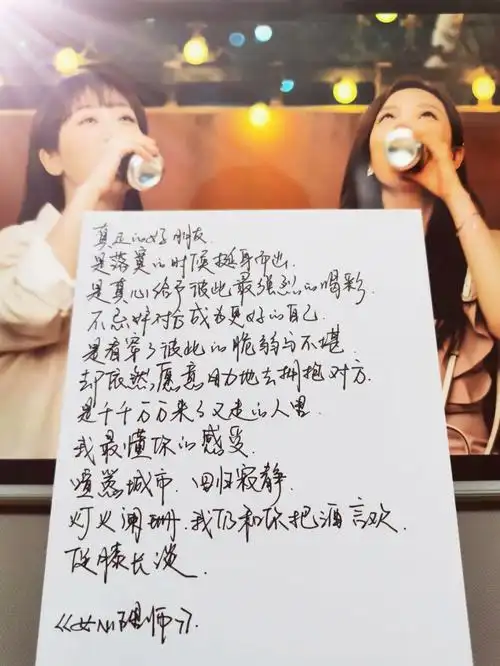 真正的好朋友
是落寞的时候挺身而出.
是真心给予彼此最强烈的喝彩
不忌妒对方成为更好的自己.
是看穿了彼此的脆弱与不堪.
却依然愿意用力地去拥抱对方.
是千千万万来了又走的人里.
我最懂你的感受.
喧嚣城市.回归寂静.
灯火阑珊.我仍和你把酒言欢.
促膝长谈.
《女心理师》.